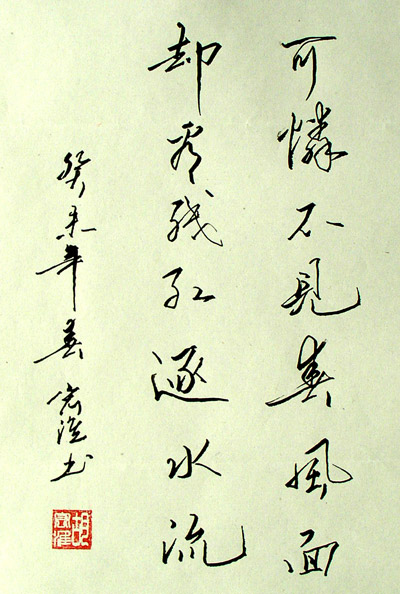 可憐不見春風面
却看残红逐水流
癸未年春 宏 书